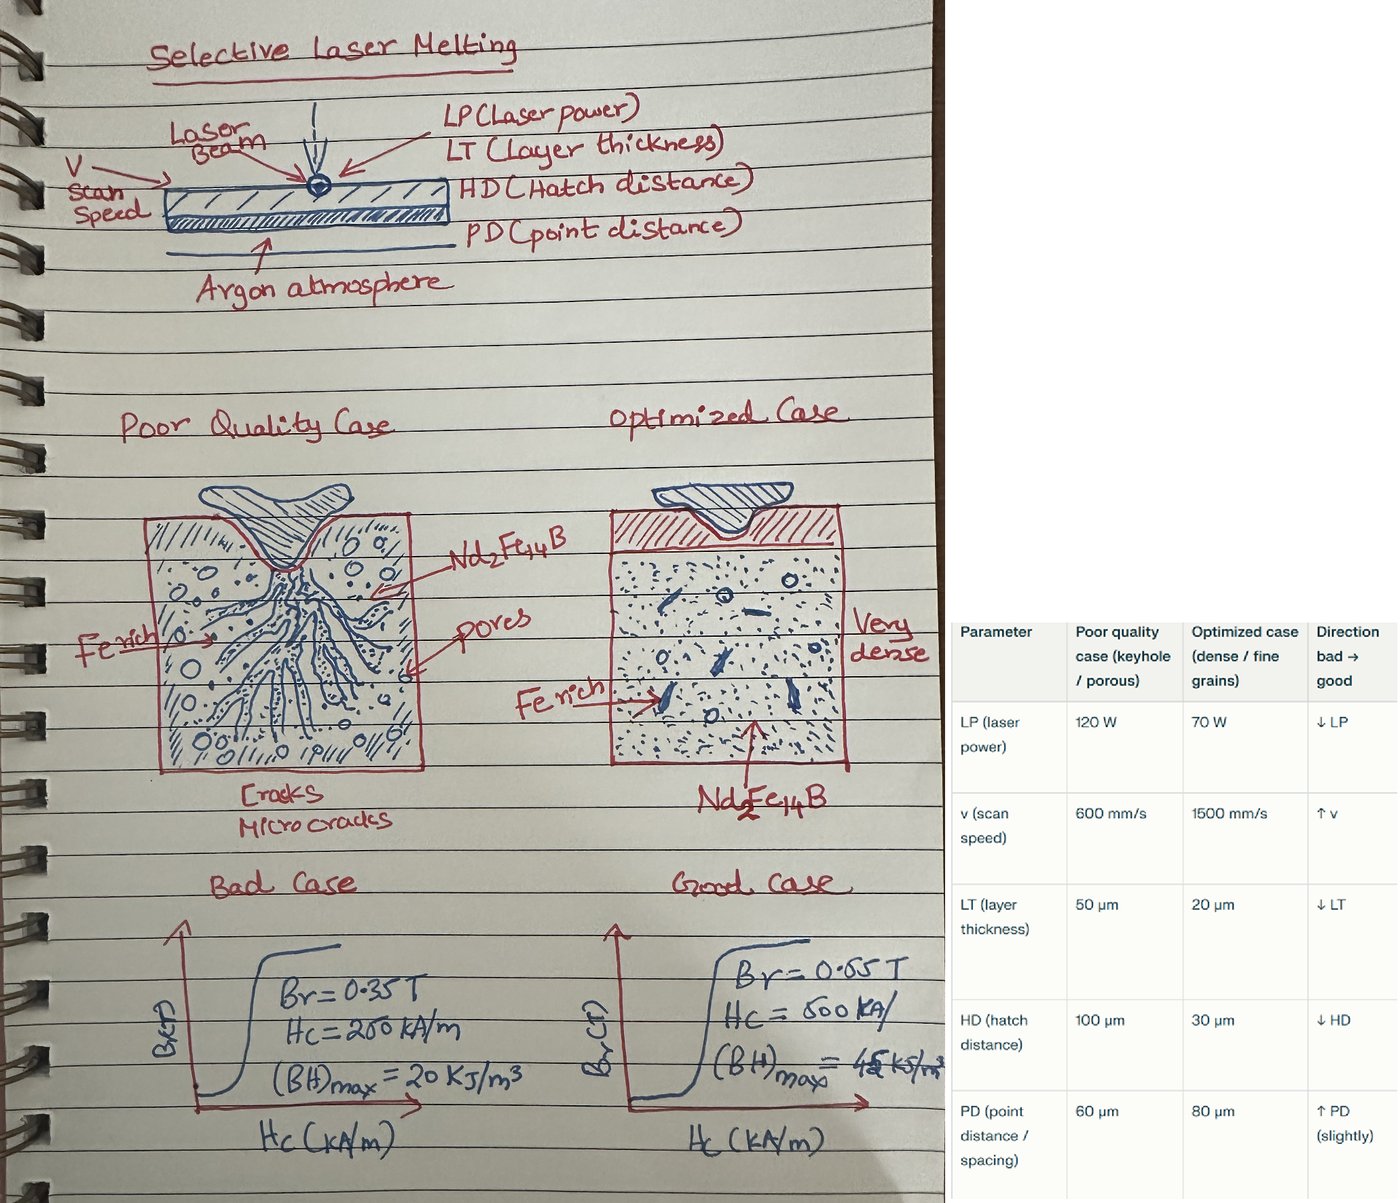 Selective Laser Melting
LP (Laser power)
Laser
Beam
LT (Layer thickness)
V
Scan
Speed
HD (Hatch distance)
PD (point distance)
Argon atmosphere
Poor Quality Case
Optimized Case
Nd₂Fe₁₄B
Pores
Fe rich
Very
dense
Fe rich
Cracks
Micro cracks
Nd₂Fe₁₄B
Bad Case
Good Case
B(T)
Br = 0.35 T
Hc = 250 kA/m
(BH)max = 20 KJ/m³
Hc (KA/m)
Br (T)
Br = 0.65 T
Hc = 500 KA/
(BH)max = 45 KJ/m³
Hc (KA/m)
Parameter
Poor quality
case (keyhole
/ porous)
Optimized case
(dense / fine
grains)
Direction
bad →
good
LP (laser
power)
120 W
70 W
↓ LP
v (scan
speed)
600 mm/s
1500 mm/s
↑ v
LT (layer
thickness)
50 µm
20 µm
↓ LT
HD (hatch
distance)
100 µm
30 µm
↓ HD
PD (point
distance /
spacing)
60 µm
80 µm
↑ PD
(slightly)